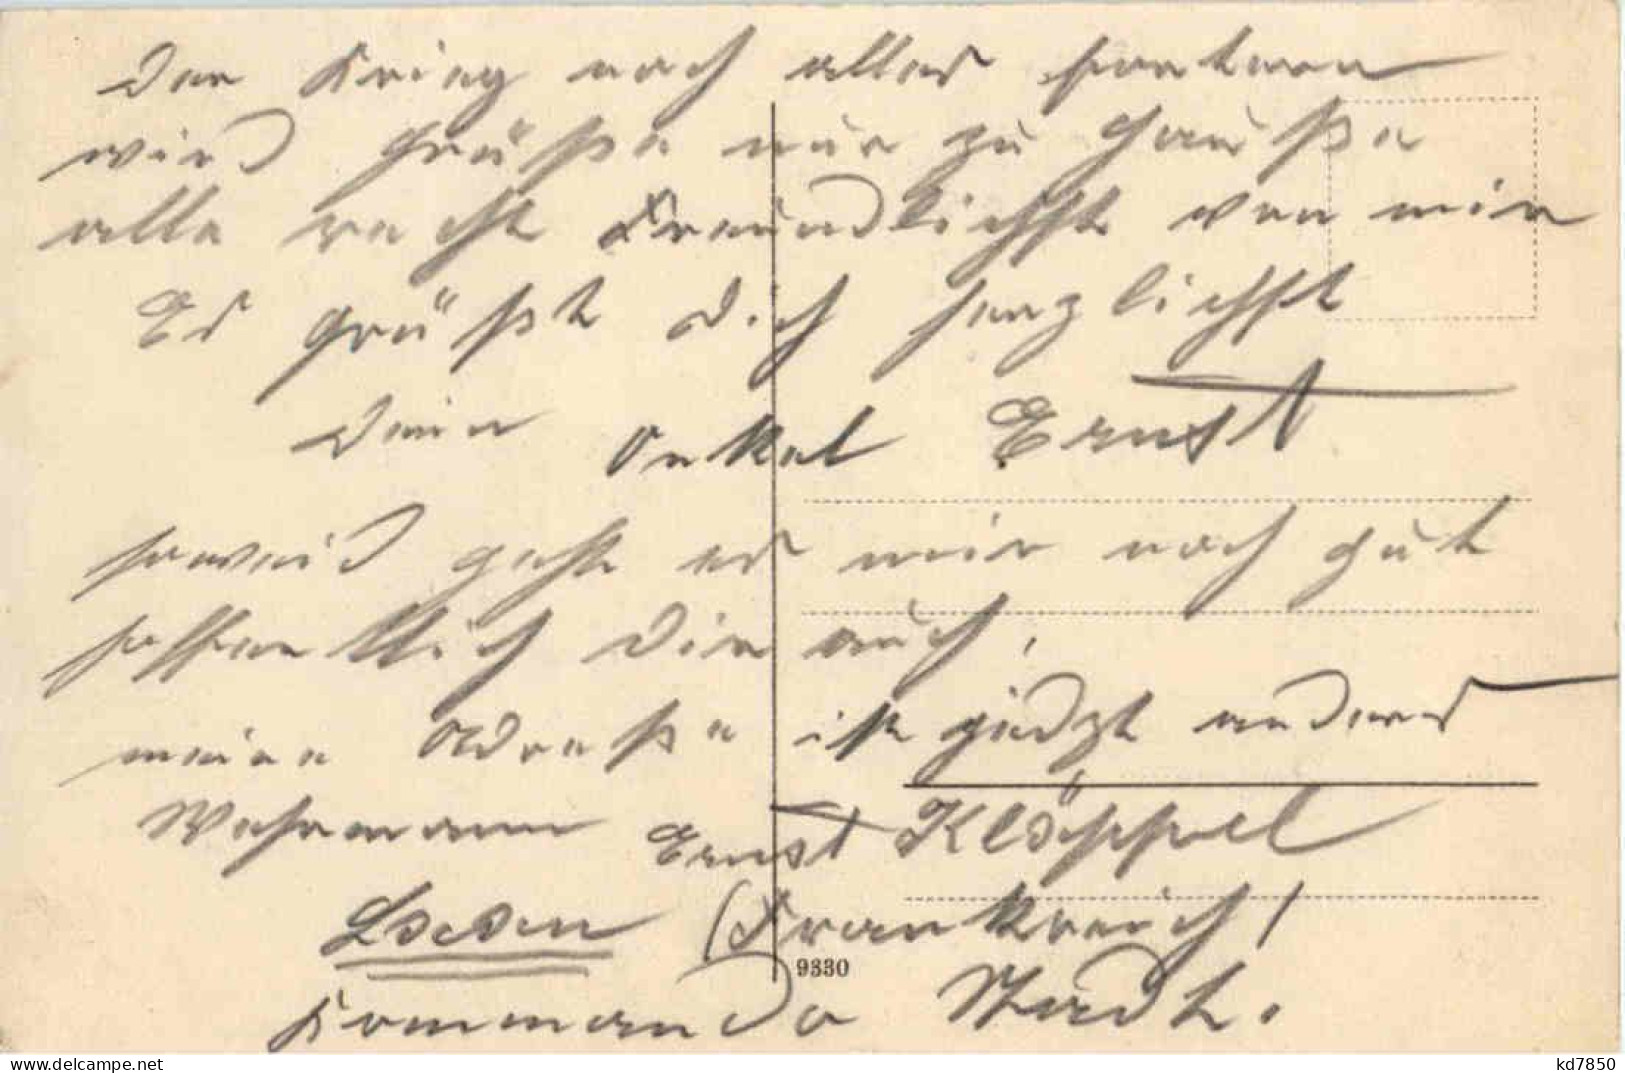 Der Krieg noch alles fordern
wird grüße nur zu Hauße
alle recht freundlichst von mir
Es grüßt Dich herzlichst
Dein Onkel Ernst
soweid geht es mir noch gut
hoffentlich Dir auch,
meine Adreße ist jedzt anders
Wehrmann Ernst Klöppel
(Frankreich)
9330
Kommando Stadt.
kd7850